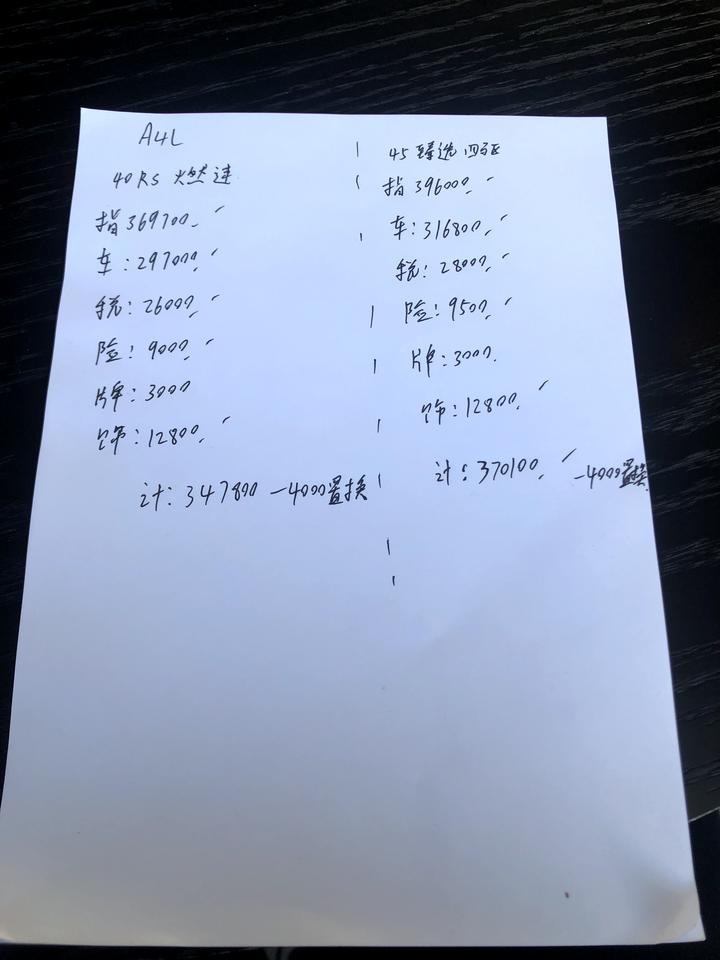 A4L
40RS 火燃速
指369700.
车:297000.
税:26000.
险:9000.
牌:3000
饰:12800.
计:347800 -4000置换
45臻选四驱
指396000.
车:316800.
税:28000.
险:9500.
牌:3000.
饰:12800.
计:370100. -4000置换